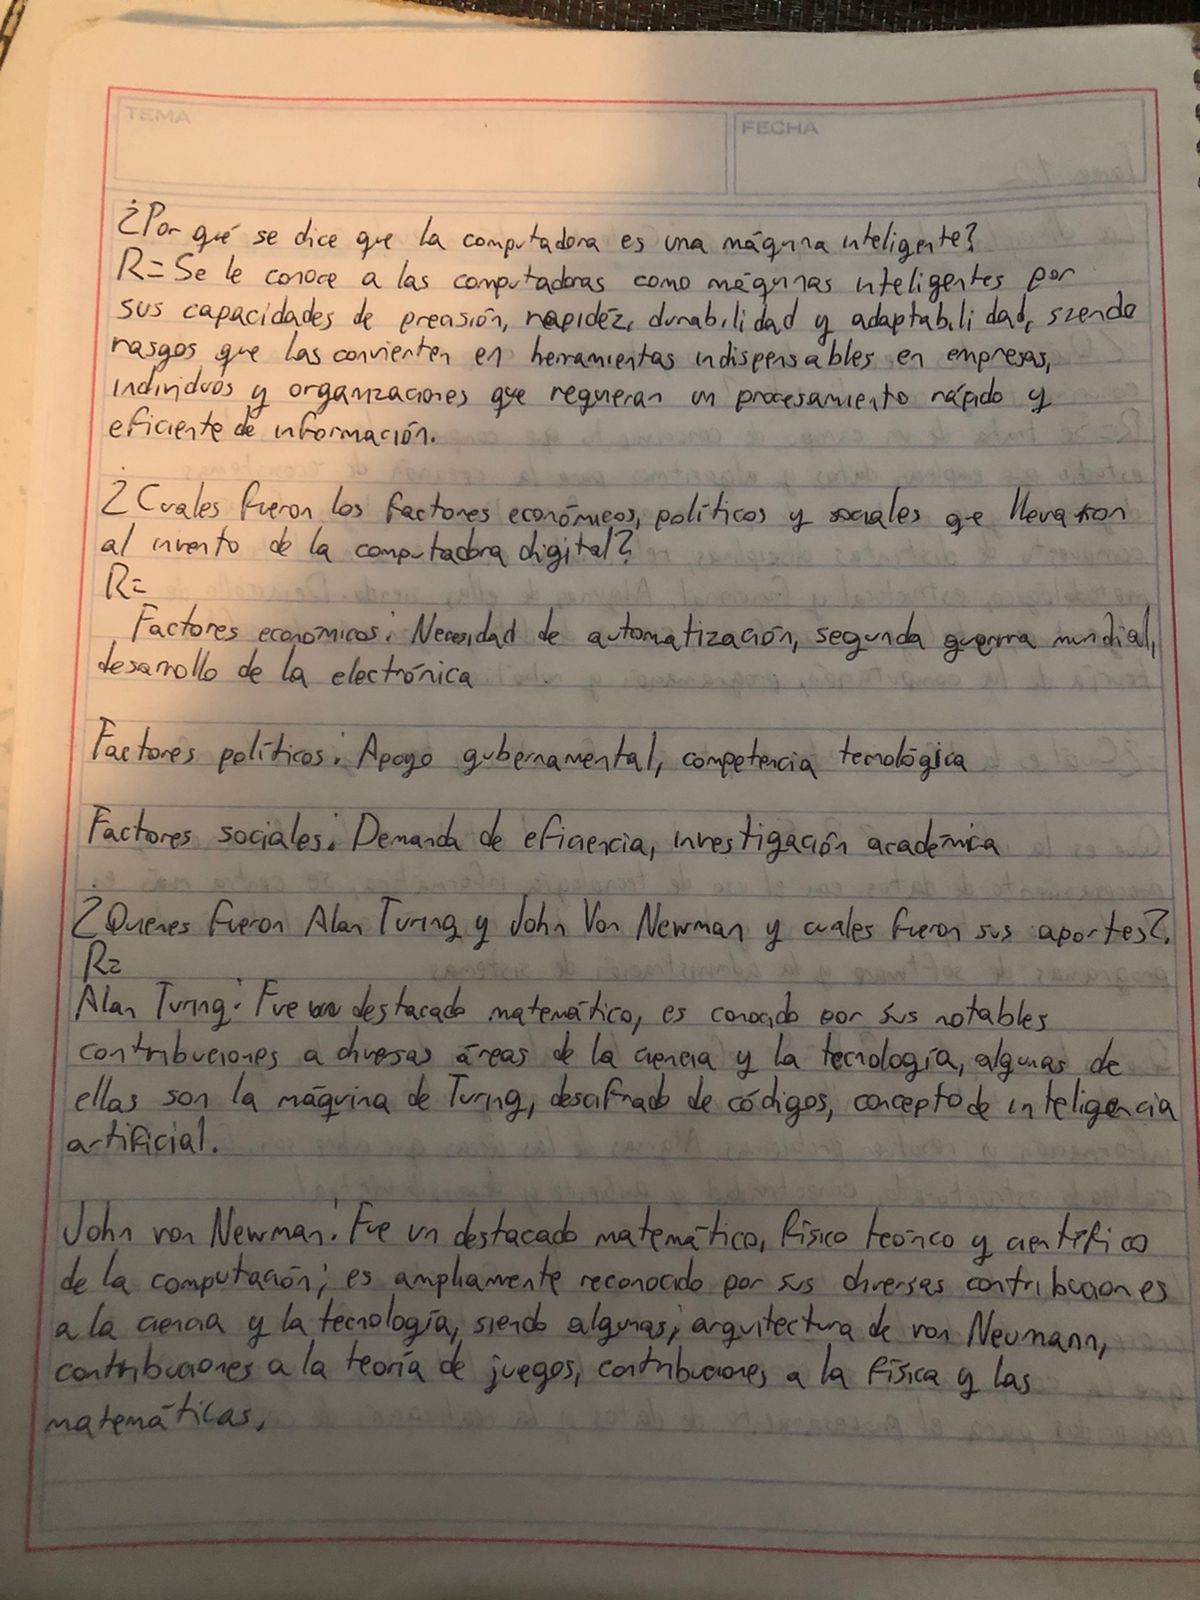 TEMA
FECHA
¿Por qué se dice que la computadora es una máquina inteligente?
R= Se le conoce a las computadoras como máquinas inteligentes por
sus capacidades de precisión, rapidéz, durabilidad y adaptabilidad, siendo
rasgos que las convierten en herramientas indispensables en empresas,
individuos y organizaciones que requieran un procesamiento rápido y
eficiente de información.
¿Cuales fueron los factores económicos, políticos y sociales que llevaron
al invento de la computadora digital?
R=
Factores económicos: Necesidad de automatización, segunda guerra mundial,
desarrollo de la electrónica
Factores políticos: Apoyo gubernamental, competencia tecnológica
Factores sociales: Demanda de eficiencia, investigación académica
¿Quienes fueron Alan Turing y John Von Newman y cuales fueron sus aportes?
R=
Alan Turing: Fue un destacado matemático, es conocido por sus notables
contribuciones a diversas áreas de la ciencia y la tecnología, algunas de
ellas son la máquina de Turing, descifrado de códigos, concepto de inteligencia
artificial.
John von Newman: Fue un destacado matemático, físico teórico y científico
de la computación; es ampliamente reconocido por sus diversas contribuciones
a la ciencia y la tecnología, siendo algunas; arquitectura de von Neumann,
contribuciones a la teoría de juegos, contribuciones a la física y las
matemáticas,